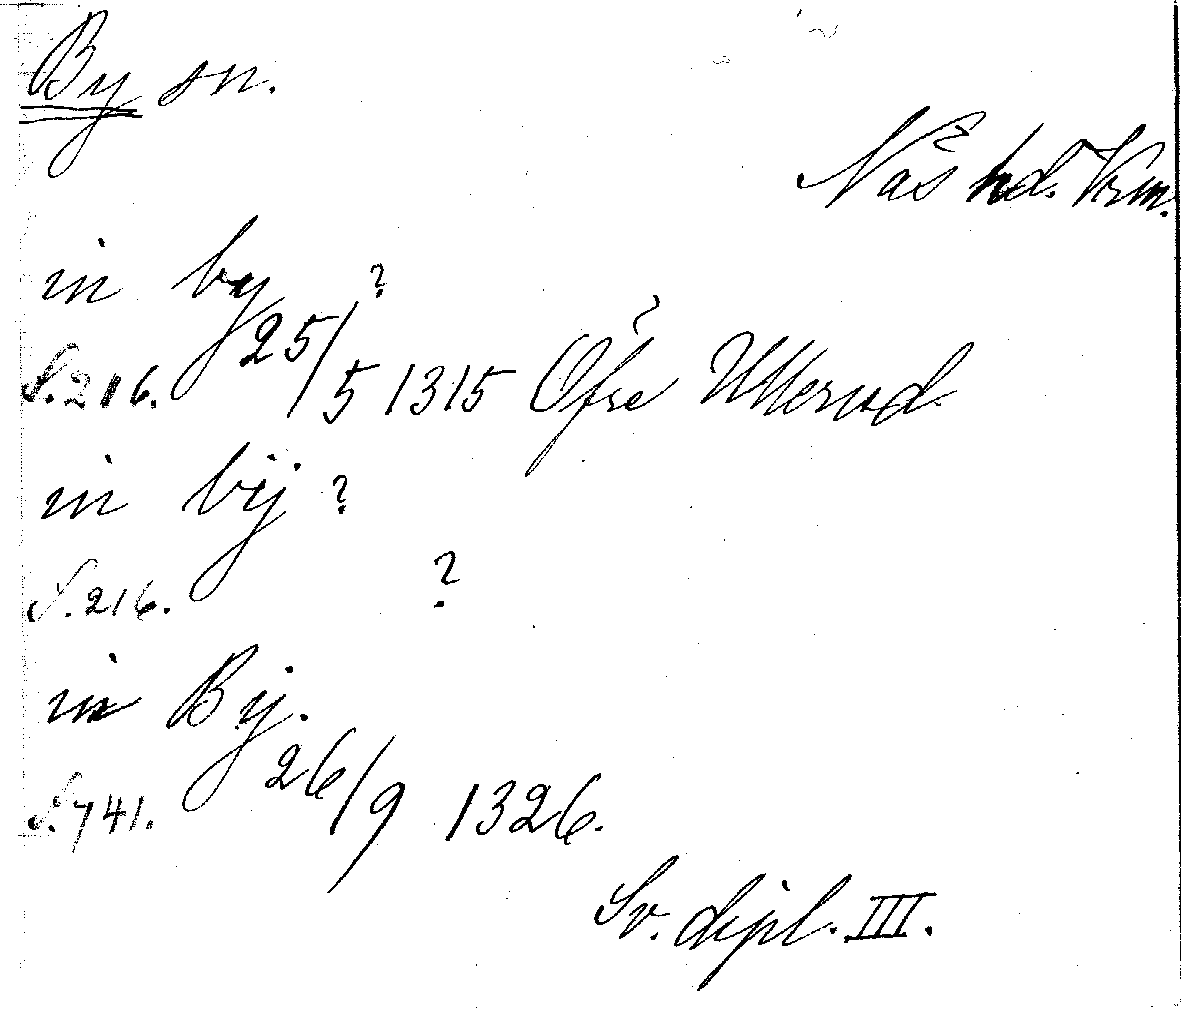 By sn.
Näs hd. Vrm.
in by ?
S. 216. 25/5 1315 Öfre Ullerud.
in bÿ ?
S. 216. ?
in Bẏ.
S. 741. 26/9 1326.
Sv. dipl. III.